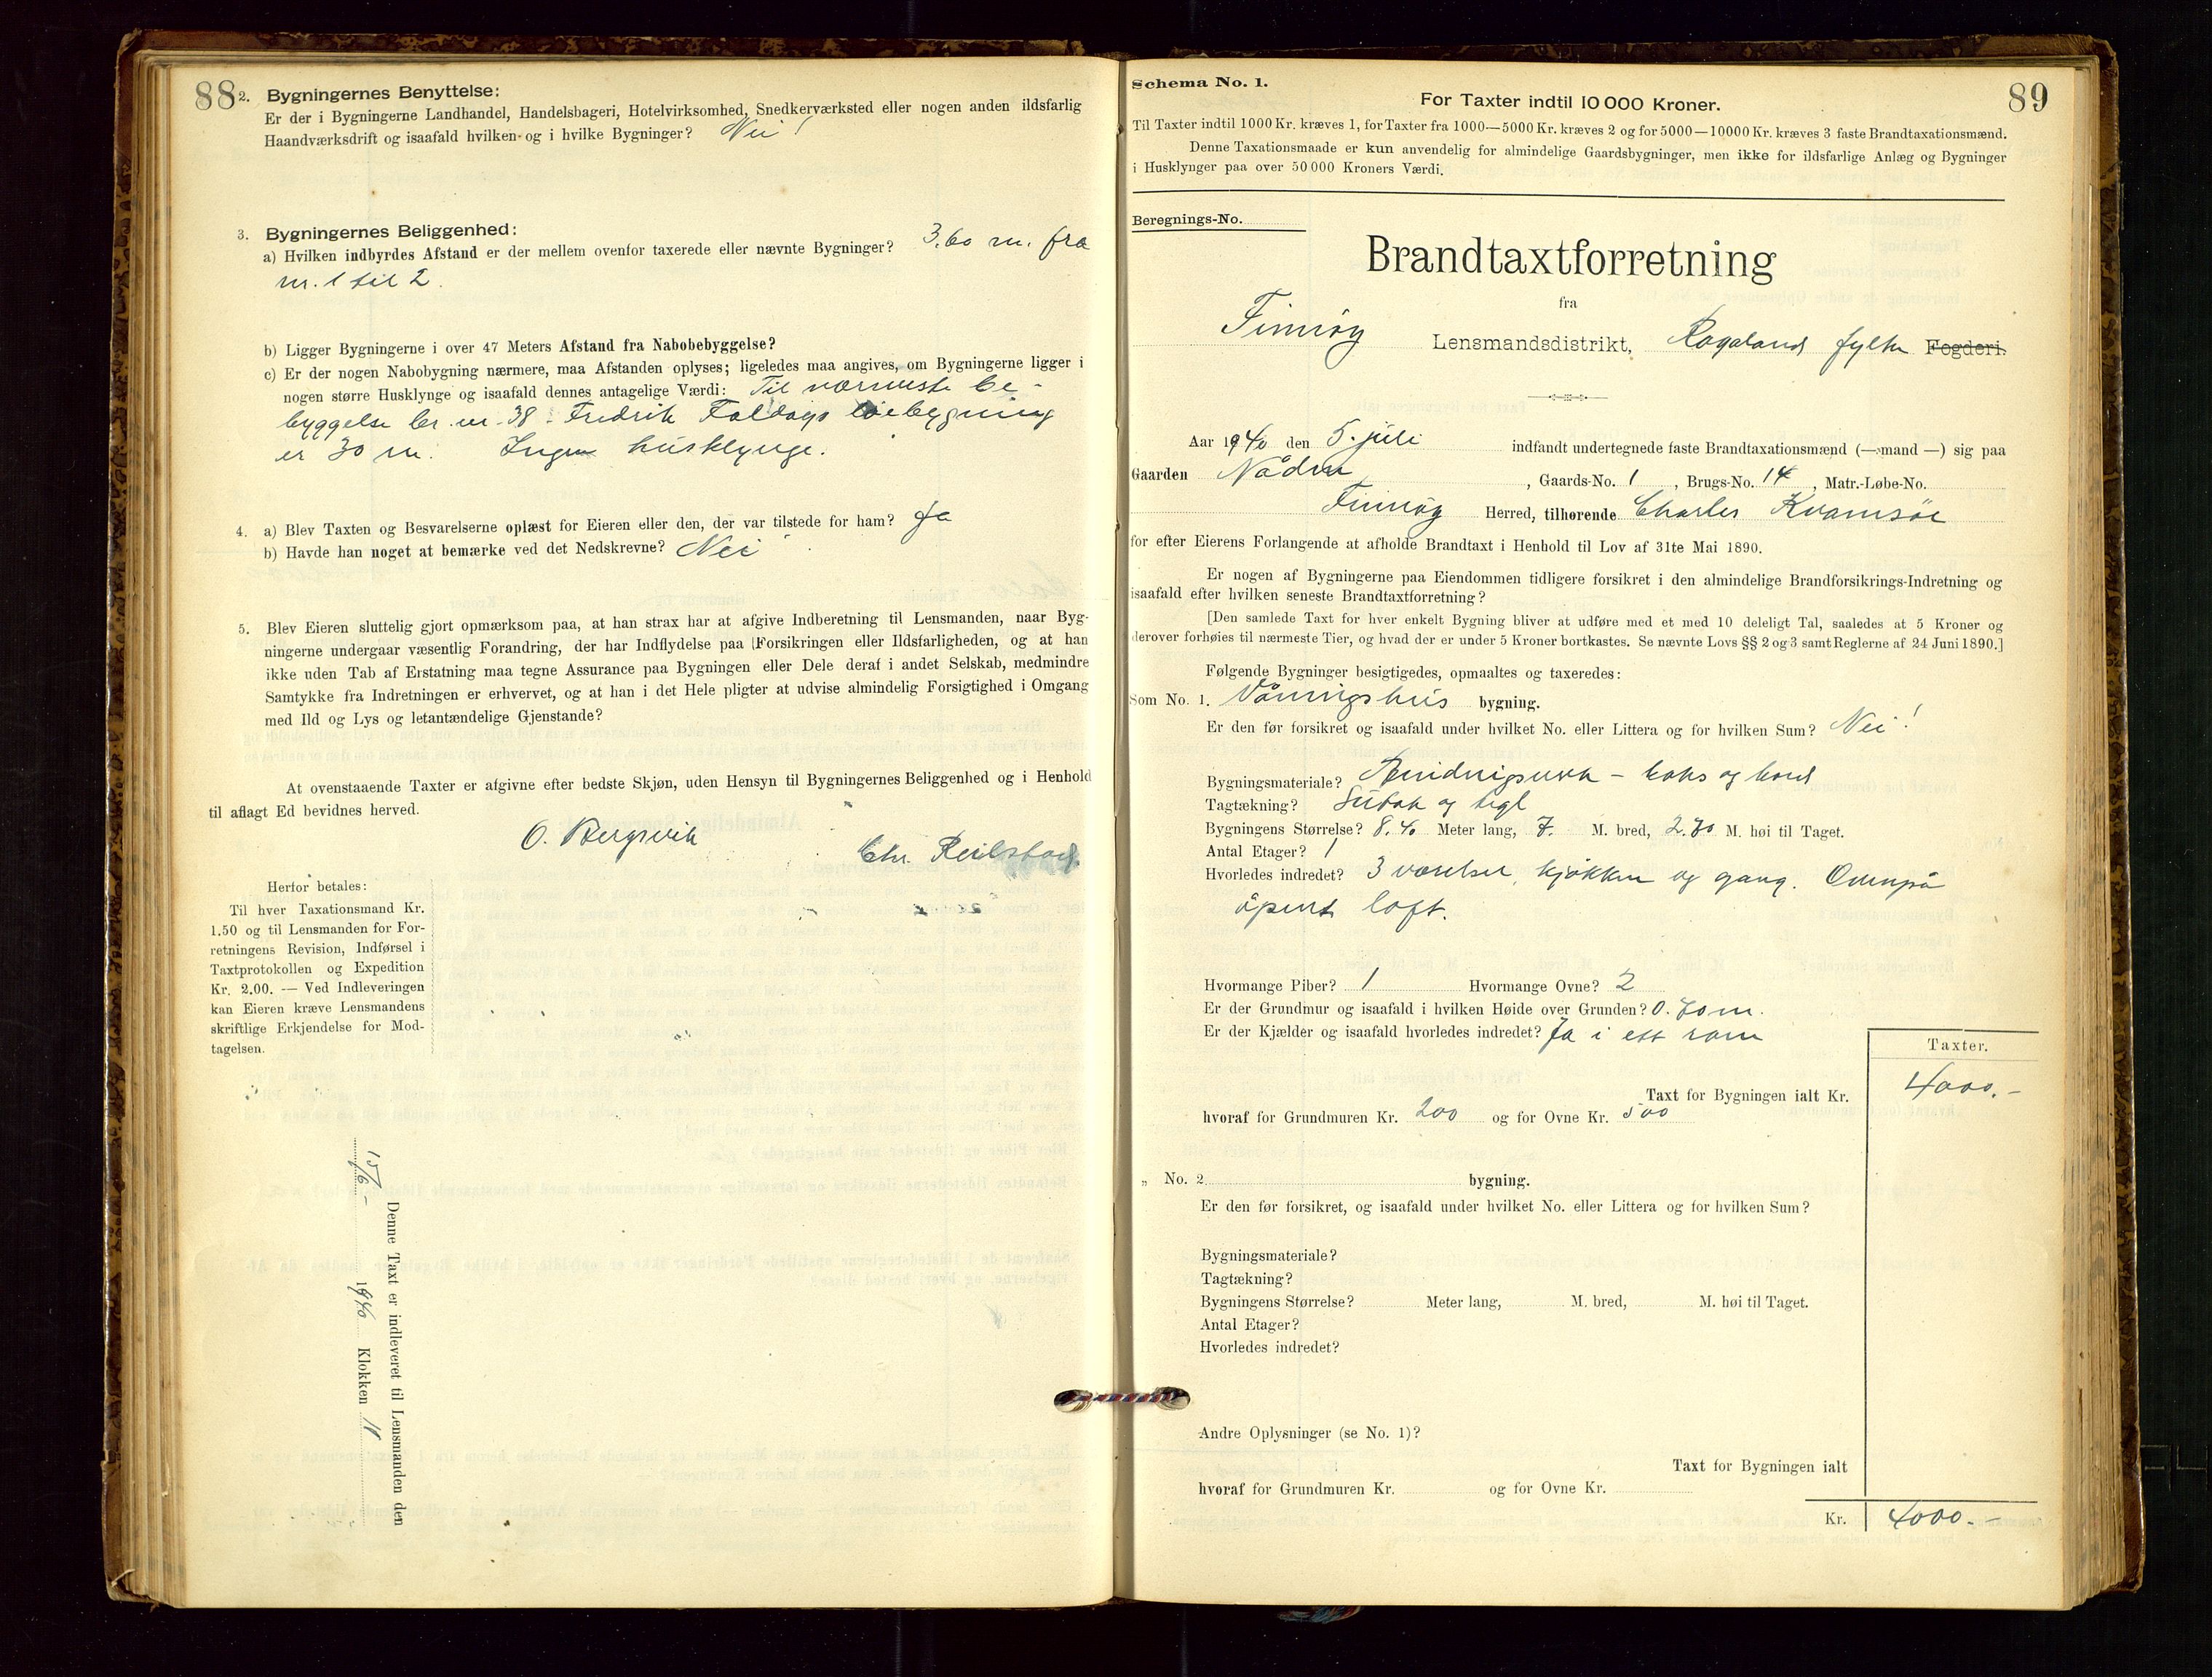 88
2. Bygningernes Benyttelse:
Er der i Bygningerne Landhandel, Handelsbageri, Hotelvirksomhed, Snedkerværksted eller nogen anden ildsfarlig
Haandværksdrift og isaafald hvilken og i hvilke Bygninger? Nei!
3. Bygningernes Beliggenhed:
a) Hvilken indbyrdes Afstand er der mellem ovenfor taxerede eller nævnte Bygninger? 3.60 m. fra
nr. 1 til 2.
b) Ligger Bygningerne i over 47 Meters Afstand fra Nabobebyggelse?
c) Er der nogen Nabobygning nærmere, maa Afstanden oplyses; ligeledes maa angives, om Bygningerne ligger i
nogen større Husklynge og isaafald dennes antagelige Værdi: Til nærmeste be-
byggelse br. nr. 38 Fredrik løebygning
er 30 m. Ingen husklynge.
4. a) Blev Taxten og Besvarelserne oplæst for Eieren eller den, der var tilstede for ham? Ja
b) Havde han noget at bemærke ved det Nedskrevne? Nei
5. Blev Eieren sluttelig gjort opmærksom paa, at han strax har at afgive Indberetning til Lensmanden, naar Byg-
ningerne undergaar væsentlig Forandring, der har Indflydelse paa Forsikringen eller Ildsfarligheden, og at han
ikke uden Tab af Erstatning maa tegne Assurance paa Bygningen eller Dele deraf i andet Selskab, medmindre
Samtykke fra Indretningen er erhvervet, og at han i det Hele pligter at udvise almindelig Forsigtighed i Omgang
med Ild og Lys og letantændelige Gjenstande?
At ovenstaaende Taxter er afgivne efter bedste Skjøn, uden Hensyn til Bygningernes Beliggenhed og i Henhold
til aflagt Ed bevidnes herved.
O. Bergsvik
Chr. Reilstad
Herfor betales:
Til hver Taxationsmand Kr.
1.50 og til Lensmanden for For-
retningens Revision, Indførsel i
Taxtprotokollen og Expedition
Kr. 2.00. — Ved Indleveringen
kan Eieren kræve Lensmandens
skriftlige Erkjendelse for Mod-
tagelsen.
Denne Taxt er indleveret til Lensmanden den
15/6 - 1940 Klokken 11
89
Schema No. 1.
For Taxter indtil 10 000 Kroner.
Til Taxter indtil 1000 Kr. kræves 1, for Taxter fra 1000—5000 Kr. kræves 2 og for 5000—10000 Kr. kræves 3 faste Brandtaxationsmænd.
Denne Taxationsmaade er kun anvendelig for almindelige Gaardsbygninger, men ikke for ildsfarlige Anlæg og Bygninger
i Husklynger paa over 50 000 Kroners Værdi.
Beregnings-No.
Brandtaxtforretning
fra
Finnøy Lensmandsdistrikt, Rogaland fylke Fogderi.
Aar 1940 den 5. juli indfandt undertegnede faste Brandtaxationsmænd (—mand —) sig paa
Gaarden Nåden, Gaards-No. 1, Brugs-No. 14, Matr.-Løbe-No.
Finnøy Herred, tilhørende Charles Kvamsøe
for efter Eierens Forlangende at afholde Brandtaxt i Henhold til Lov af 31te Mai 1890.
Er nogen af Bygningerne paa Eiendommen tidligere forsikret i den almindelige Brandforsikrings-Indretning og
isaafald efter hvilken seneste Brandtaxtforretning?
[Den samlede Taxt for hver enkelt Bygning bliver at udføre med et med 10 deleligt Tal, saaledes at 5 Kroner og
derover forhøies til nærmeste Tier, og hvad der er under 5 Kroner bortkastes. Se nævnte Lovs §§ 2 og 3 samt Reglerne af 24 Juni 1890.]
Følgende Bygninger besigtigedes, opmaaltes og taxeredes:
Som No. 1. Våningshus bygning.
Er den før forsikret og isaafald under hvilket No. eller Littera og for hvilken Sum? Nei!
Bygningsmateriale? Bindingsverk - og bord
Tagtækning? Sutak og tegl
Bygningens Størrelse? 8.40 Meter lang, 7. M. bred, 2.70 M. høi til Taget.
Antal Etager? 1
Hvorledes indredet? 3 værelser, kjøkken og gang. Ovenpå
åpent loft.
Hvormange Piber? 1 Hvormange Ovne? 2
Er der Grundmur og isaafald i hvilken Høide over Grunden? 0.70 m.
Er der Kjælder og isaafald hvorledes indredet? Ja i ett rom
Taxter.
Taxt for Bygningen ialt Kr. 4000.-
hvoraf for Grundmuren Kr. 200 og for Ovne Kr. 500
„ No. 2 bygning.
Er den før forsikret, og isaafald under hvilket No. eller Littera og for hvilken Sum?
Bygningsmateriale?
Tagtækning?
Bygningens Størrelse? Meter lang, M. bred, M. høi til Taget.
Antal Etager?
Hvorledes indredet?
Andre Oplysninger (se No. 1)?
Taxt for Bygningen ialt
hvoraf for Grundmuren Kr. og for Ovne Kr.
Kr. 4000.-